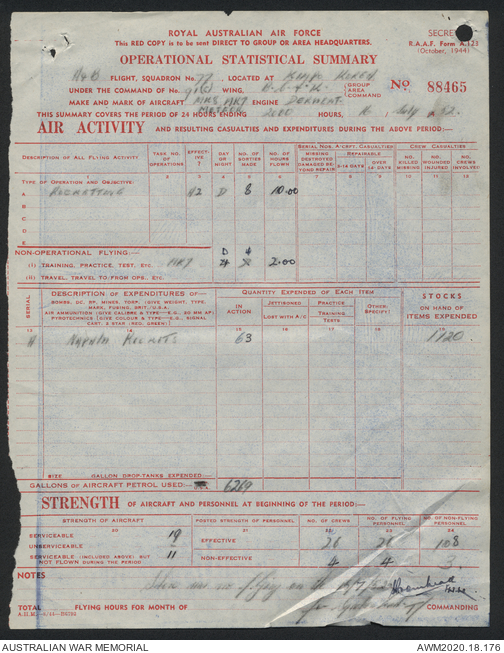 ROYAL AUSTRALIAN AIR FORCE
SECRET
This RED COPY is to be sent DIRECT TO GROUP OR AREA HEADQUARTERS.
R.A.A.F. Form A.123
(October, 1944)
OPERATIONAL STATISTICAL SUMMARY
A&B FLIGHT, SQUADRON No. 77, LOCATED AT KIMPO KOREA
UNDER THE COMMAND OF No. 91(C) WING, GROUP/AREA COMMAND No 88465
MAKE AND MARK OF AIRCRAFT METEOR ENGINE DERWENT
THIS SUMMARY COVERS THE PERIOD OF 24 HOURS ENDING 2000 HOURS, 16 July 1952.
AIR ACTIVITY AND RESULTING CASUALTIES AND EXPENDITURES DURING THE ABOVE PERIOD:—
DESCRIPTION OF ALL FLYING ACTIVITY
TASK NO. OF OPERATIONS
EFFECTIVE
DAY OR NIGHT
NO. OF SORTIES MADE
NO. OF HOURS FLOWN
SERIAL NOS. A/CRFT. CASUALTIES
MISSING DESTROYED DAMAGED BEYOND REPAIR
REPAIRABLE
OVER 14-DAYS
CREW CASUALTIES
NO. KILLED MISSING
NO. WOUNDED INJURED
NO. CREWS INVOLVED
TYPE OF OPERATION AND OBJECTIVE:
ROCKETTING D 8 10.00
B
C
D
E
NON-OPERATIONAL FLYING:— D 4
(I) TRAINING, PRACTICE, TEST, ETC. 2.00
(II) TRAVEL, TRAVEL TO/FROM OPS., ETC.
SERIAL
DESCRIPTION OF EXPENDITURES OF:—
BOMBS, DC, RP, MINES, TORP. (GIVE WEIGHT, TYPE, MARK, FUSING, BRIT./U.S.A.)
AIR AMMUNITION (GIVE CALIBRE & TYPE—E.G., 20 MM AP)
PYROTECHNICS (GIVE COLOUR & TYPE—E.G., SIGNAL CART. 2 STAR (RED, GREEN))
QUANTITY EXPENDED OF EACH ITEM
IN ACTION
JETTISONED LOST WITH A/C
PRACTICE TRAINING TESTS
OTHER: (SPECIFY)
STOCKS ON HAND OF ITEMS EXPENDED
A NAPALM ROCKETS 63 1120
SIZE GALLON DROP-TANKS EXPENDED:—
GALLONS OF AIRCRAFT PETROL USED:— 6269
STRENGTH OF AIRCRAFT AND PERSONNEL AT BEGINNING OF THE PERIOD:—
STRENGTH OF AIRCRAFT
POSTED STRENGTH OF PERSONNEL
NO. OF CREWS
NO. OF FLYING PERSONNEL
NO. OF NON-FLYING PERSONNEL
SERVICEABLE 19 EFFECTIVE 26 108
UNSERVICEABLE
SERVICEABLE (INCLUDED ABOVE) BUT NOT FLOWN DURING THE PERIOD 11 NON-EFFECTIVE 4 4 3
NOTES There was no flying on the
TOTAL FLYING HOURS FOR MONTH OF COMMANDING
AUSTRALIAN WAR MEMORIAL AWM2020.18.176